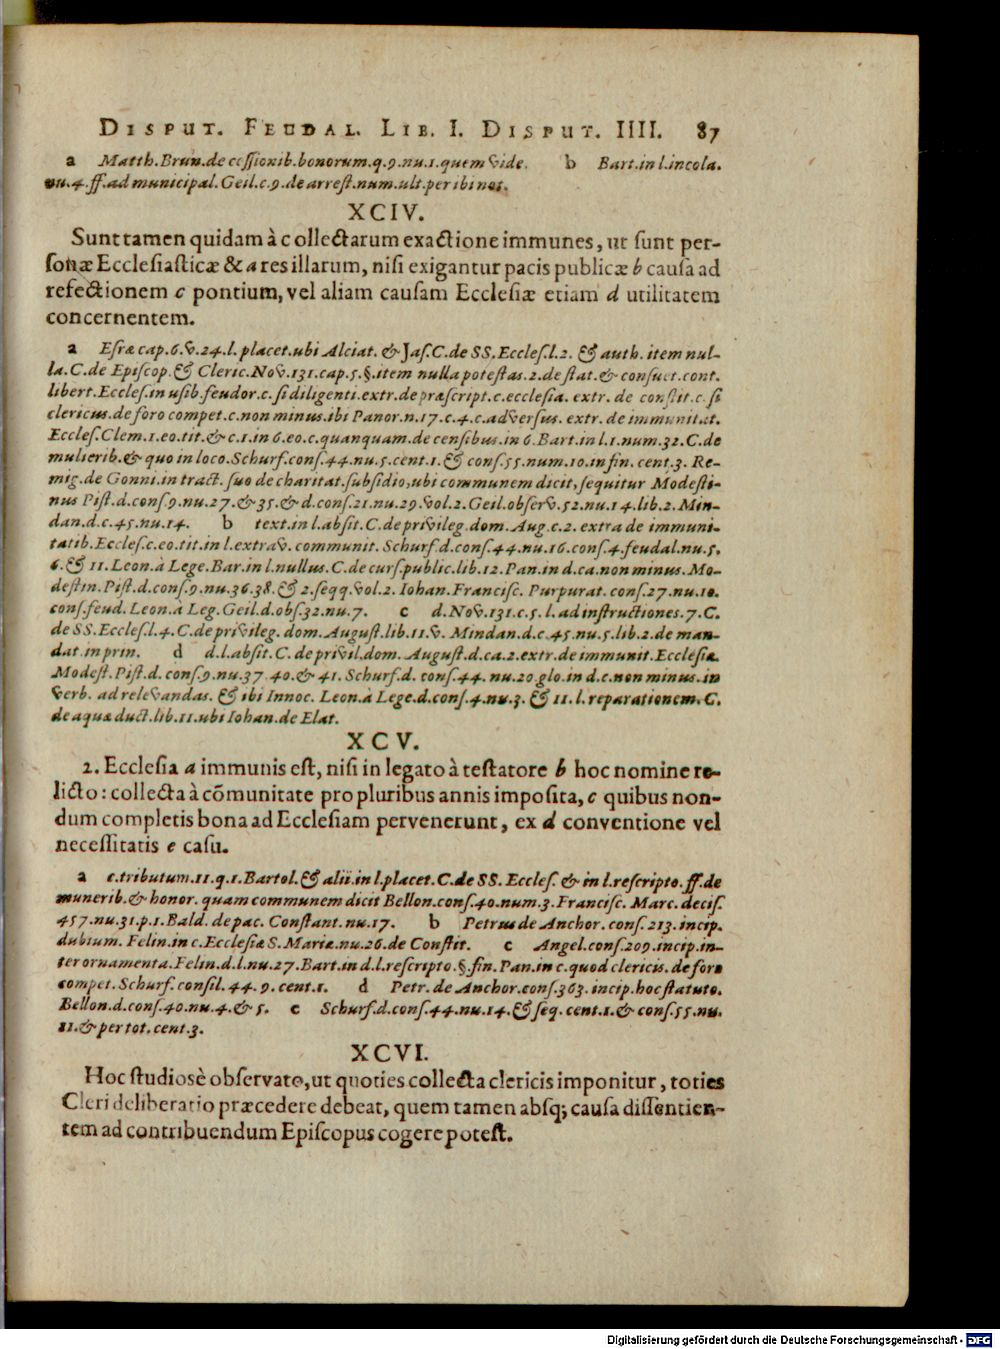 DISPUT. FEUDAL. LIB. I. DISPUT. IIII. 87
a Matth.Brun.de cessionib.bonorum.q.9.nu.1.quem vide. b Bart.in l.incola.
nu.4.ff.ad municipal.Geil.c.9.de arrest.num.ult.per ibi not.
XCIV.
Sunt tamen quidam à collectarum exactione immunes, ut sunt per-
sonæ Ecclesiasticæ & a res illarum, nisi exigantur pacis publicæ b causa ad
refectionem c pontium, vel aliam causam Ecclesiæ etiam d utilitatem
concernentem.
a Esræ cap.6.v.24.l.placet.ubi Alciat. & Jas.C.de SS.Eccles.l.2. & auth.item nul-
la.C.de Episcop.& Cleric.Nov.131.cap.5.§.item nulla potestas.2.de stat.& consuet.cont.
libert.Eccles.in usib.feudor.c.si diligenti.extr.de præscript.c.ecclesia. extr. de constit.c.si
clericus.de foro compet.c.non minus.ibi Panor.n.17.c.4.c.adversus. extr. de immunitat.
Eccles.Clem.1.eo.tit.& c.1.in 6.eo.c.quanquam.de censibus.in 6.Bart.in l.1.num.32.C.de
mulierib.& quo in loco.Schurf.cons.44.nu.5.cent.1.& cons.55.num.10.in fin. cent.3. Re-
mig.de Gonni.in tract. suo de charitat.subsidio,ubi communem dicit,sequitur Modesti-
nus Pist.d.cons.9.nu.27.&35.& d.cons.21.nu.29.vol.2.Geil.observ.52.nu.14.lib.2.Min-
dan.d.c.45.nu.14. b text.in l.absit.C.de privileg.dom.Aug.c.2.extra de immuni-
tatib.Eccles.c.eo.tit.in l.extrav. communit. Schurf.d.cons.44.nu.16.cons.4.feudal.nu.5.
6.& 11.Leon.à Lege.Bar.in l.nullus.C.de curs.public.lib.12.Pan.in d.ca.non minus.Mo-
destin.Pist.d.cons.9.nu.36.38.& 2.seqq.vol.2. Iohan.Francisc. Purpurat.cons.27.nu.10.
cons.feud. Leon.à Leg.Geil.d.obs.32.nu.7. c d.Nov.131.c.5.l.ad instructiones.7.C.
de SS.Eccles.l.4.C.de privileg. dom.August.lib.11.v. Mindan.d.c.45.nu.5.lib.2.de man-
dat.in prin. d d.l.absit.C.de privil.dom. August.d.ca.2.extr.de immunit.Ecclesiæ.
Modest.Pist.d. cons.9.nu.37.40.& 41. Schurf.d. cons.44. nu.20.glo.in d.c.non minus.in
verb. ad relevandas. & ibi Innoc. Leon.à Lege.d.cons.4.nu.3. & 11.l.reparationem.C.
de aquæ duct.lib.11.ubi Iohan.de Elat.
XCV.
2. Ecclesia a immunis est, nisi in legato à testatore b hoc nomine re-
licto: collecta à cõmunitate pro pluribus annis imposita, c quibus non-
dum completis bona ad Ecclesiam pervenerunt, ex d conventione vel
necessitatis e casu.
a c.tributum.11.q.1.Bartol.& alii.in l.placet.C.de SS. Eccles. & in l.rescripto.ff.de
munerib.& honor. quam communem dicit Bellon.cons.40.num.3.Francisc. Marc.decis.
457.nu.31.p.1.Bald. de pac. Constant.nu.17. b Petrus de Anchor. cons. 213.incip.
dubium. Felin.in c.Ecclesia S.Mariæ.nu.26.de Constit. c Angel.cons.209.incip.in-
ter ornamenta.Felin.d.l.nu.27.Bart.in d.l.rescripto.§.fin.Pan.in c.quod clericis.de foro
compet.Schurf. consil.44.9.cent.1. d Petr.de Anchor.cons.363.incip.hoc statuto.
Bellon.d.cons.40.nu.4.& 5. e Schurf.d.cons.44.nu.14.& seq. cent.1.& cons.55.nu.
11.& per tot.cent.3.
XCVI.
Hoc studiosè observato, ut quoties collecta clericis imponitur, toties
Cleri deliberatio præcedere debeat, quem tamen absq; causa dissentien-
tem ad contribuendum Episcopus cogere potest.
Digitalisierung gefördert durch die Deutsche Forschungsgemeinschaft - DFG